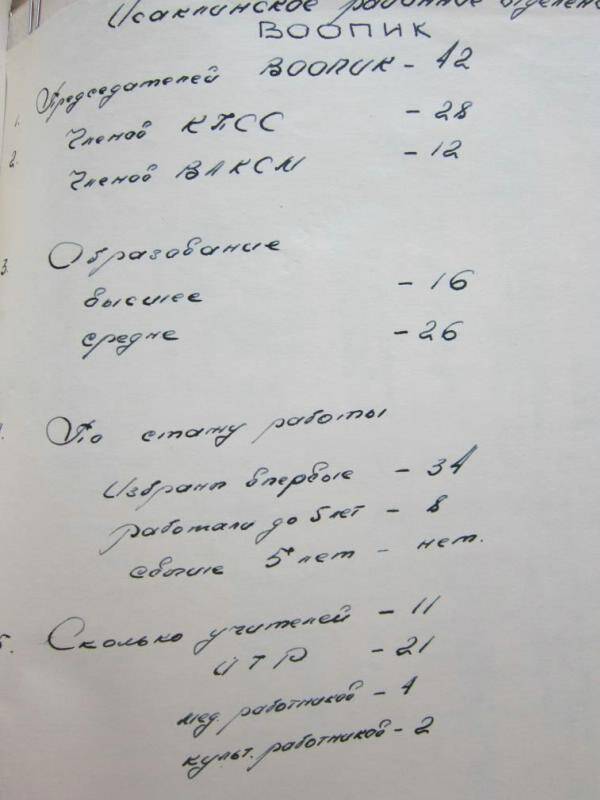 Исаклинское районное отделен
ВООПИК
1. Председателей ВООПИК - 42
2. Членов КПСС - 28
Членов ВЛКСМ - 12
3. Образование
высшее - 16
средне - 26
По стажу работы
Избраны впервые - 34
работали до 5 лет - 8
свыше 5 лет - нет.
5. Сколько учителей - 11
ИТР - 21
мед. работников - 4
культ. работников - 2